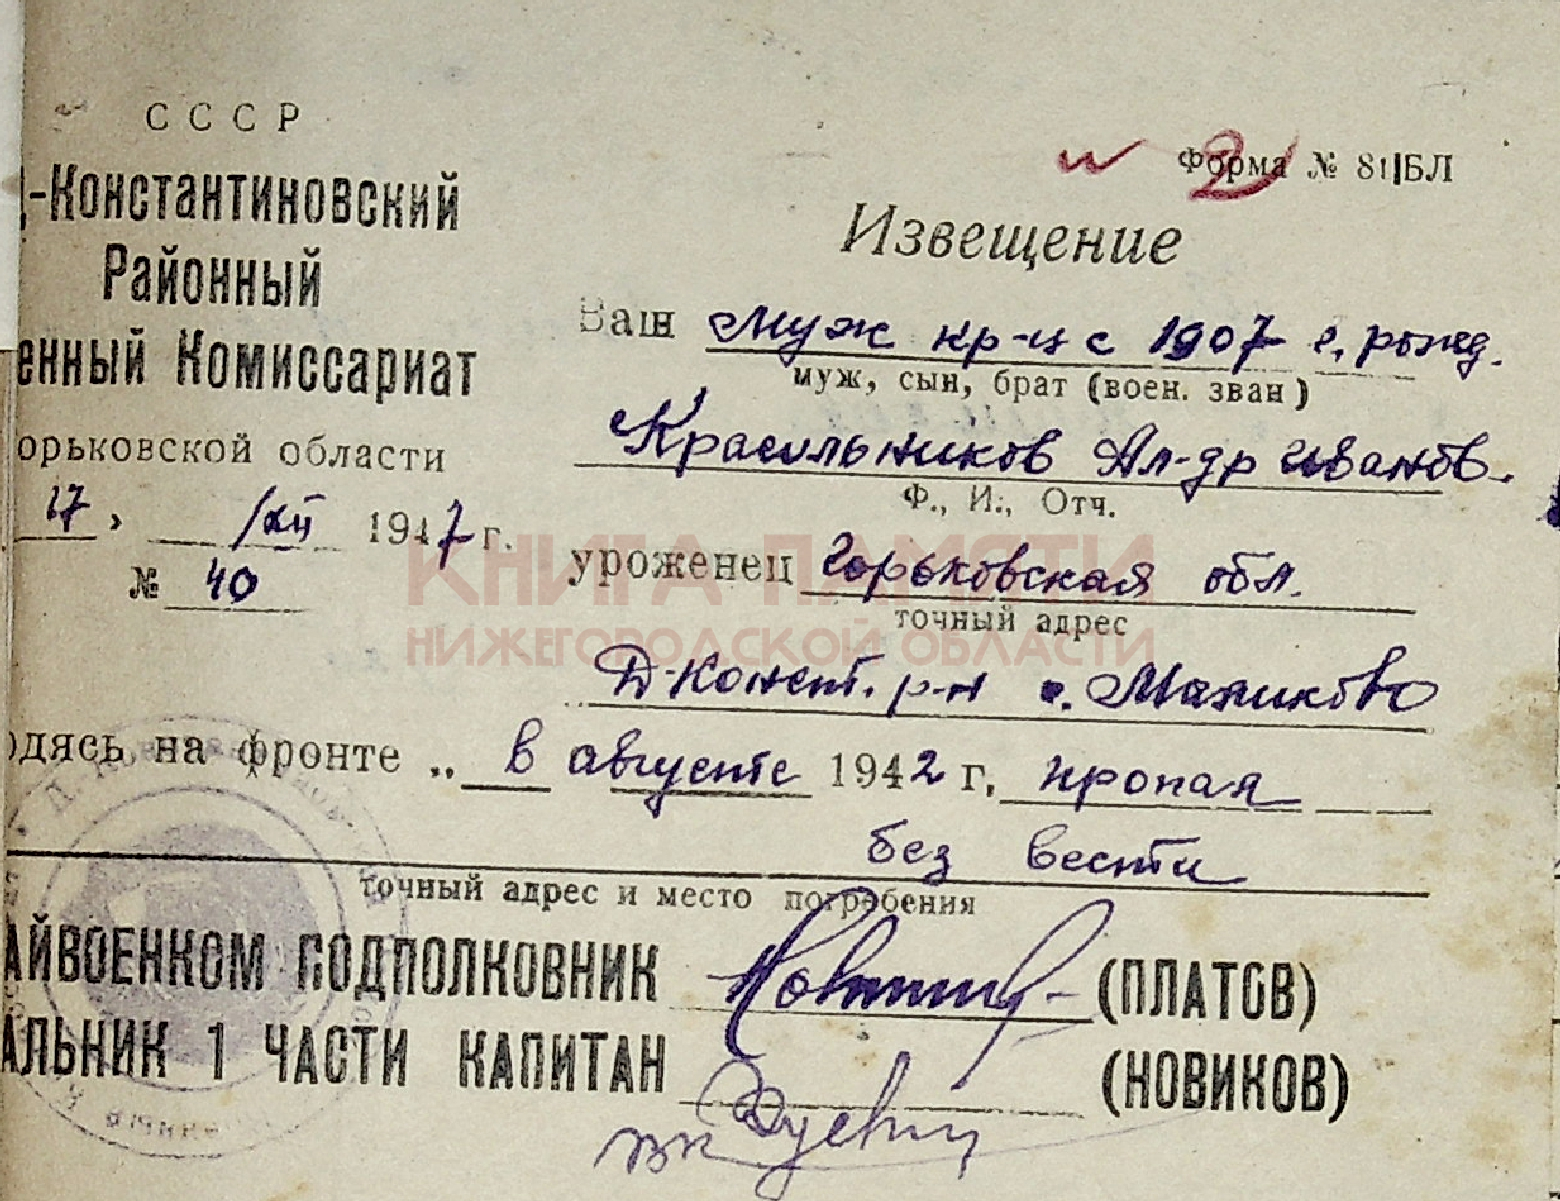 СССР
Д-Константиновский
Районный
енный Комиссариат
орьковской области
17, /XII 1947 г.
№ 40
Форма № 81|БЛ
2
Извещение
Ваш муж кр-ц с 1907 г. рожд.
муж, сын, брат (воен. зван)
Красильников Ал-др Иванов.
Ф., И., Отч.
уроженец Горьковская обл.
точный адрес
Д-Конст. р-н с. Маликово
одясь на фронте „ в августе 1942 г, пропал
без вести
точный адрес и место погребения
АЙВОЕНКОМ ПОДПОЛКОВНИК (ПЛАТОВ)
АЛЬНИК 1 ЧАСТИ КАПИТАН (НОВИКОВ)
КНИГА ПАМЯТИ
НИЖЕГОРОДСКОЙ ОБЛАСТИ